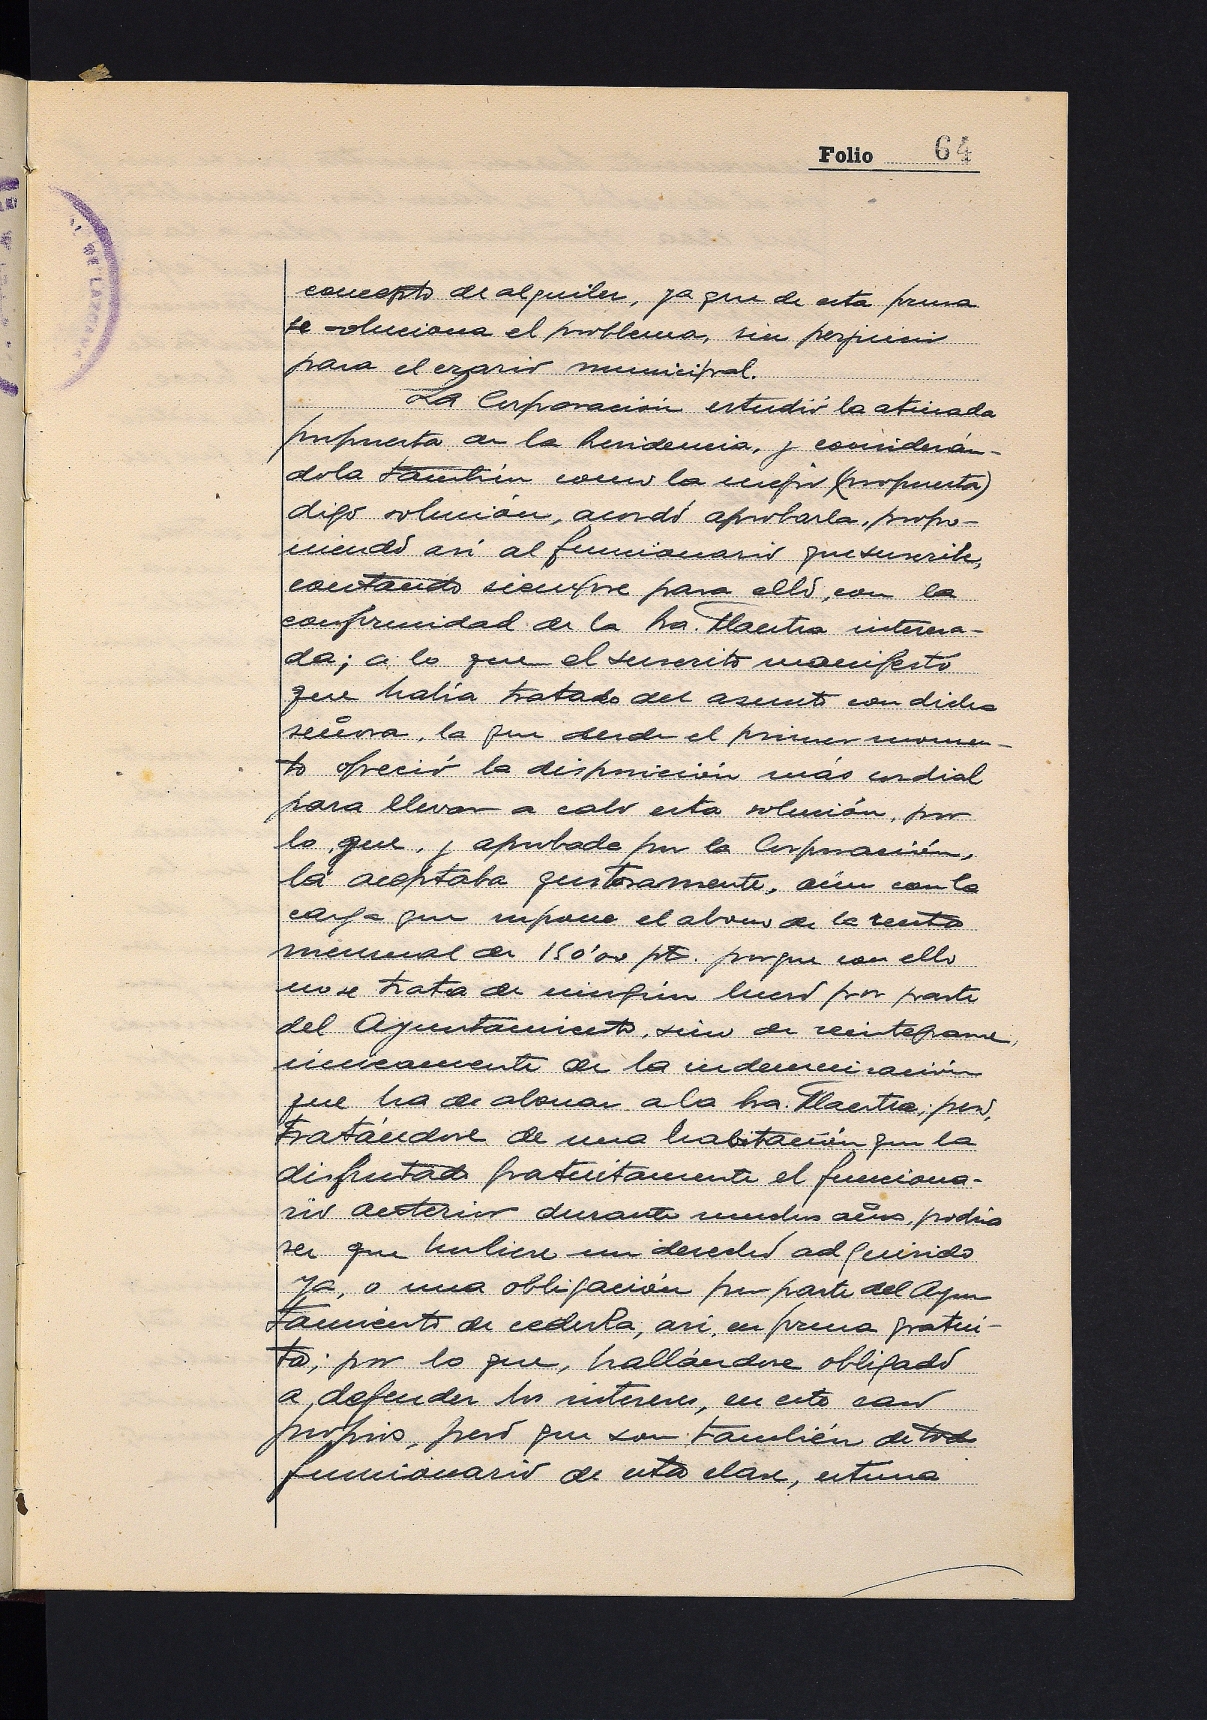 Folio 64
AL DE LAZCANO
concepto de alquiler, ya que de esta forma
se soluciona el problema, sin perjuicio
para el erario municipal.
La Corporación estudió la atinada
propuesta de la Presidencia, y considerán-
dola también como la mejor (propuesta)
digo solución, acordó aprobarla, propo-
niendo así al funcionario que suscribe,
contando siempre para ello, con la
conformidad de la Sra. Maestra interesa-
da; a lo que el suscrito manifestó
que había tratado del asunto con dicha
señora, la que desde el primer momen-
to ofreció la disposición más cordial
para llevar a cabo esta solución, por
lo que, y aprobada por la Corporación,
la aceptaba gustosamente, aún con la
carga que supone el abono de la renta
mensual de 150'00 pts. porque con ello
no se trata de ningún lucro por parte
del Ayuntamiento, sino de reintegrarse
únicamente de la indemnización
que ha de abonar a la Sra. Maestra; pero,
tratándose de una habitación que la
disfrutado gratuitamente el funciona-
rio anterior durante muchos años, podría
ser que hubiese un derecho adquirido
ya, o una obligación por parte del Ayun
tamiento de cederla, así, en forma gratui-
ta; por lo que, hallándose obligado
a defender los intereses, en este caso
propios, pero que son también de todo
funcionario de esta clase, estima